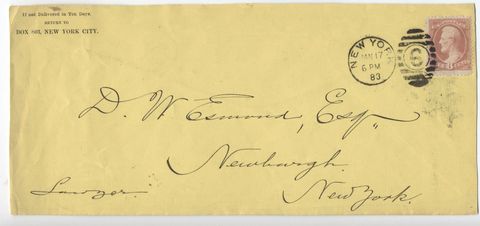 If not Delivered in Ten Days,
RETURN TO
BOX 803, NEW YORK CITY.
NEW YORK
JAN 17
6 PM
83
6
D. W. Esmond, Esq.,
Newburgh.
Lawyer.
New York.